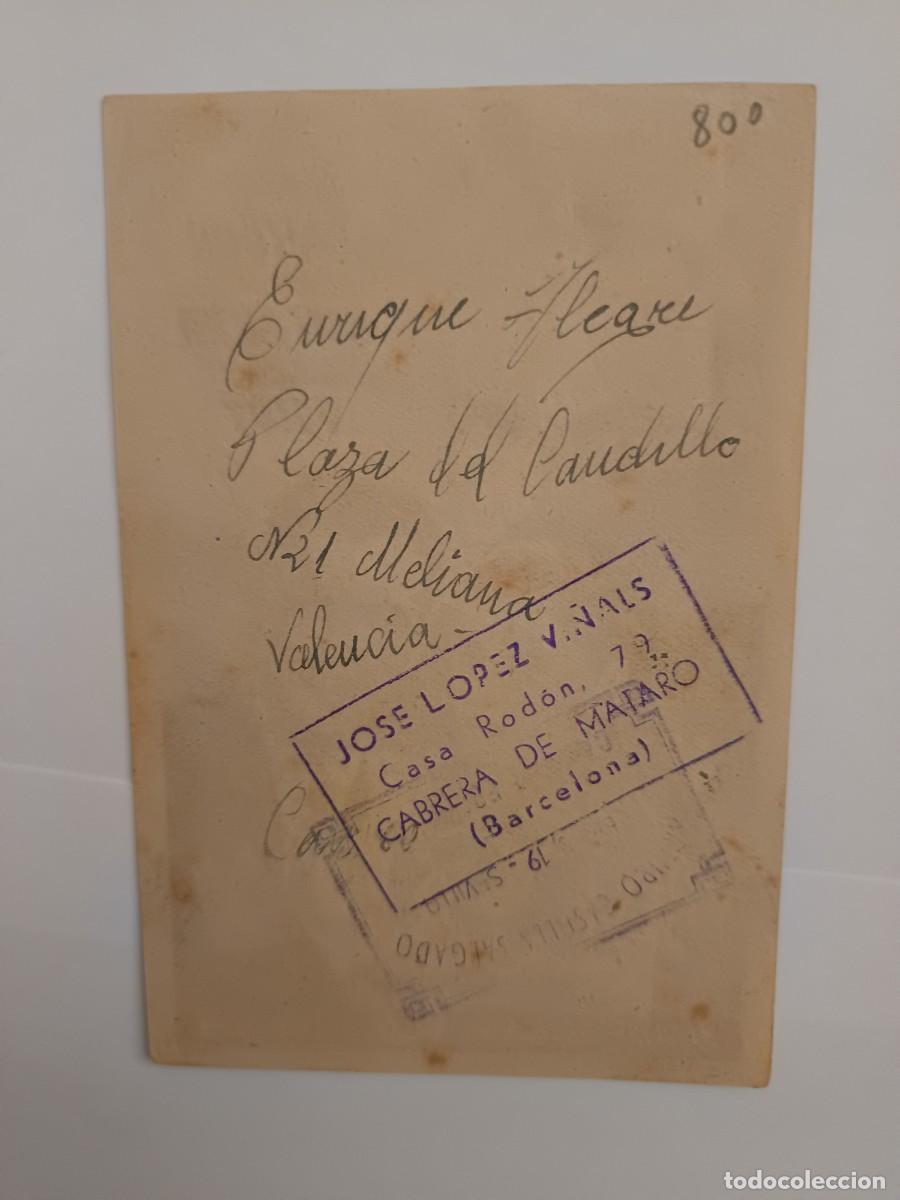 800
Enrique Alegre
Plaza del Caudillo
Nº 1 Meliana
Valencia
JOSE LOPEZ VIÑALS
Casa Rodón, 79
CABRERA DE MATARO
(Barcelona)
19 - SEVILLA
SALGADO
todocoleccion